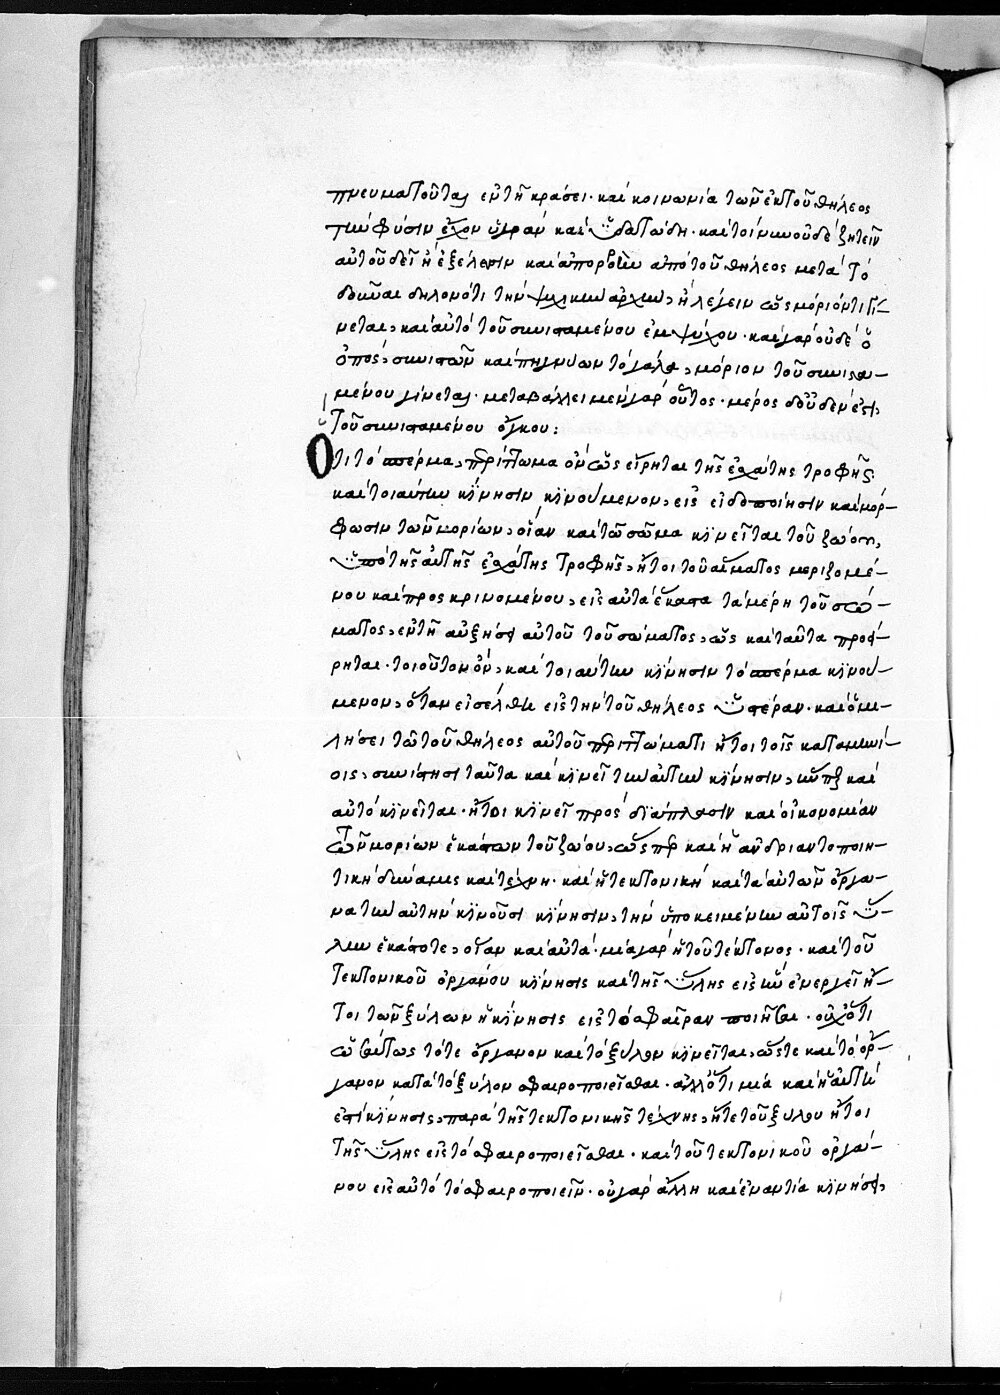 πνευματοῦται ἐν τῇ κράσει· καὶ κοινωνία τῶν ἐκ τοῦ θήλεος
τὴν φύσιν ἔχον ὑγρὰν καὶ ὑδατώδη· καὶ τοίνυν οὐδὲ ζητεῖν
αὐτοῦ δεῖ ἢ ἐξέλευσιν καὶ ἀπορροὴν ἀπὸ τοῦ θήλεος μετὰ τὸ
δοῦναι δηλονότι τὴν ψυχικὴν ἀρχὴν, ἢ λέγειν ὡς μόριόν τι γί-
νεται, καὶ αὐτὸ τοῦ συνισταμένου ἐμψύχου· καὶ γὰρ οὐδὲ ὁ
ὀπὸς, συνιστῶν καὶ πηγνύων τὸ γάλα, μόριον τοῦ συνιστα-
μένου γίνεται· μεταβάλλει μὲν γὰρ οὗτος· μέρος δ' οὐδέν ἐστι
τοῦ συνισταμένου ὄγκου:
Ὅτι τὸ σπέρμα, περίττωμα ὂν ὡς εἴρηται τῆς ἐσχάτης τροφῆς
καὶ τοιαύτην κίνησιν κινούμενον, εἰς εἰδοποίησιν καὶ μόρ-
φωσιν τῶν μορίων, οἵαν καὶ τὸ σῶμα κινεῖται τοῦ ζώου,
ὑπὸ τῆς αὐτῆς ἐσχάτης τροφῆς, ἤτοι τοῦ αἵματος μεριζομέ-
νου καὶ προσκρινομένου, εἰς αὐτὰ ἕκαστα τὰ μέρη τοῦ σώ-
ματος, ἐν τῇ αὐξήσει αὐτοῦ τοῦ σώματος, ὡς καὶ ταῦτα προεί-
ρηται· τοιοῦτον ὂν, καὶ τοιαύτην κίνησιν τὸ σπέρμα κινού-
μενον, ὅταν εἰσέλθῃ εἰς τὴν τοῦ θήλεος ὑστέραν· καὶ ὁμι-
λήσει τῷ τοῦ θήλεος αὐτοῦ περιττώματι ἤτοι τοῖς καταμηνί-
οις, συνίστησι ταῦτα καὶ κινεῖ τὴν αὐτὴν κίνησιν, ἥνπερ καὶ
αὐτὸ κινεῖται· ἤτοι κινεῖ πρὸς διάπλασιν καὶ οἰκονομίαν
τῶν μορίων ἑκάστων τοῦ ζώου, ὥσπερ καὶ ἡ ἀνδριαντοποιη-
τικὴ δύναμις καὶ τέχνη· καὶ ἡ τεκτονικὴ καὶ τὰ αὐτῶν ὄργα-
να τὴν αὐτὴν κινοῦσι κίνησιν, τὴν ὑποκειμένην αὐτοῖς ὕ-
λην ἑκάστοτε, οἵαν καὶ αὐτά· μία γὰρ ἡ τοῦ τέκτονος· καὶ τοῦ
τεκτονικοῦ ὀργάνου κίνησις καὶ τῆς ὕλης εἰς ἣν ἐνεργεῖ ἤ-
τοι τῶν ξύλων ἡ κίνησις εἰς τὸ σφαῖραν ποιῆσαι· οὐχ ὅτι
ὡσαύτως τότε ὄργανον καὶ τὸ ξύλον κινεῖται, ὥστε καὶ τὸ ὄρ-
γανον κατὰ τὸ ξύλον σφαιροποιεῖσθαι· ἀλλ' ὅτι μία καὶ ἡ αὐτή
ἐστι κίνησις, παρὰ τῆς τεκτονικῆς τέχνης, ἥ τε τοῦ ξύλου ἤτοι
τῆς ὕλης εἰς τὸ σφαιροποιεῖσθαι· καὶ τοῦ τεκτονικοῦ ὀργά-
νου εἰς αὐτὸ τὸ σφαιροποιεῖν· οὐ γὰρ ἄλλη καὶ ἐναντία κινήσει,